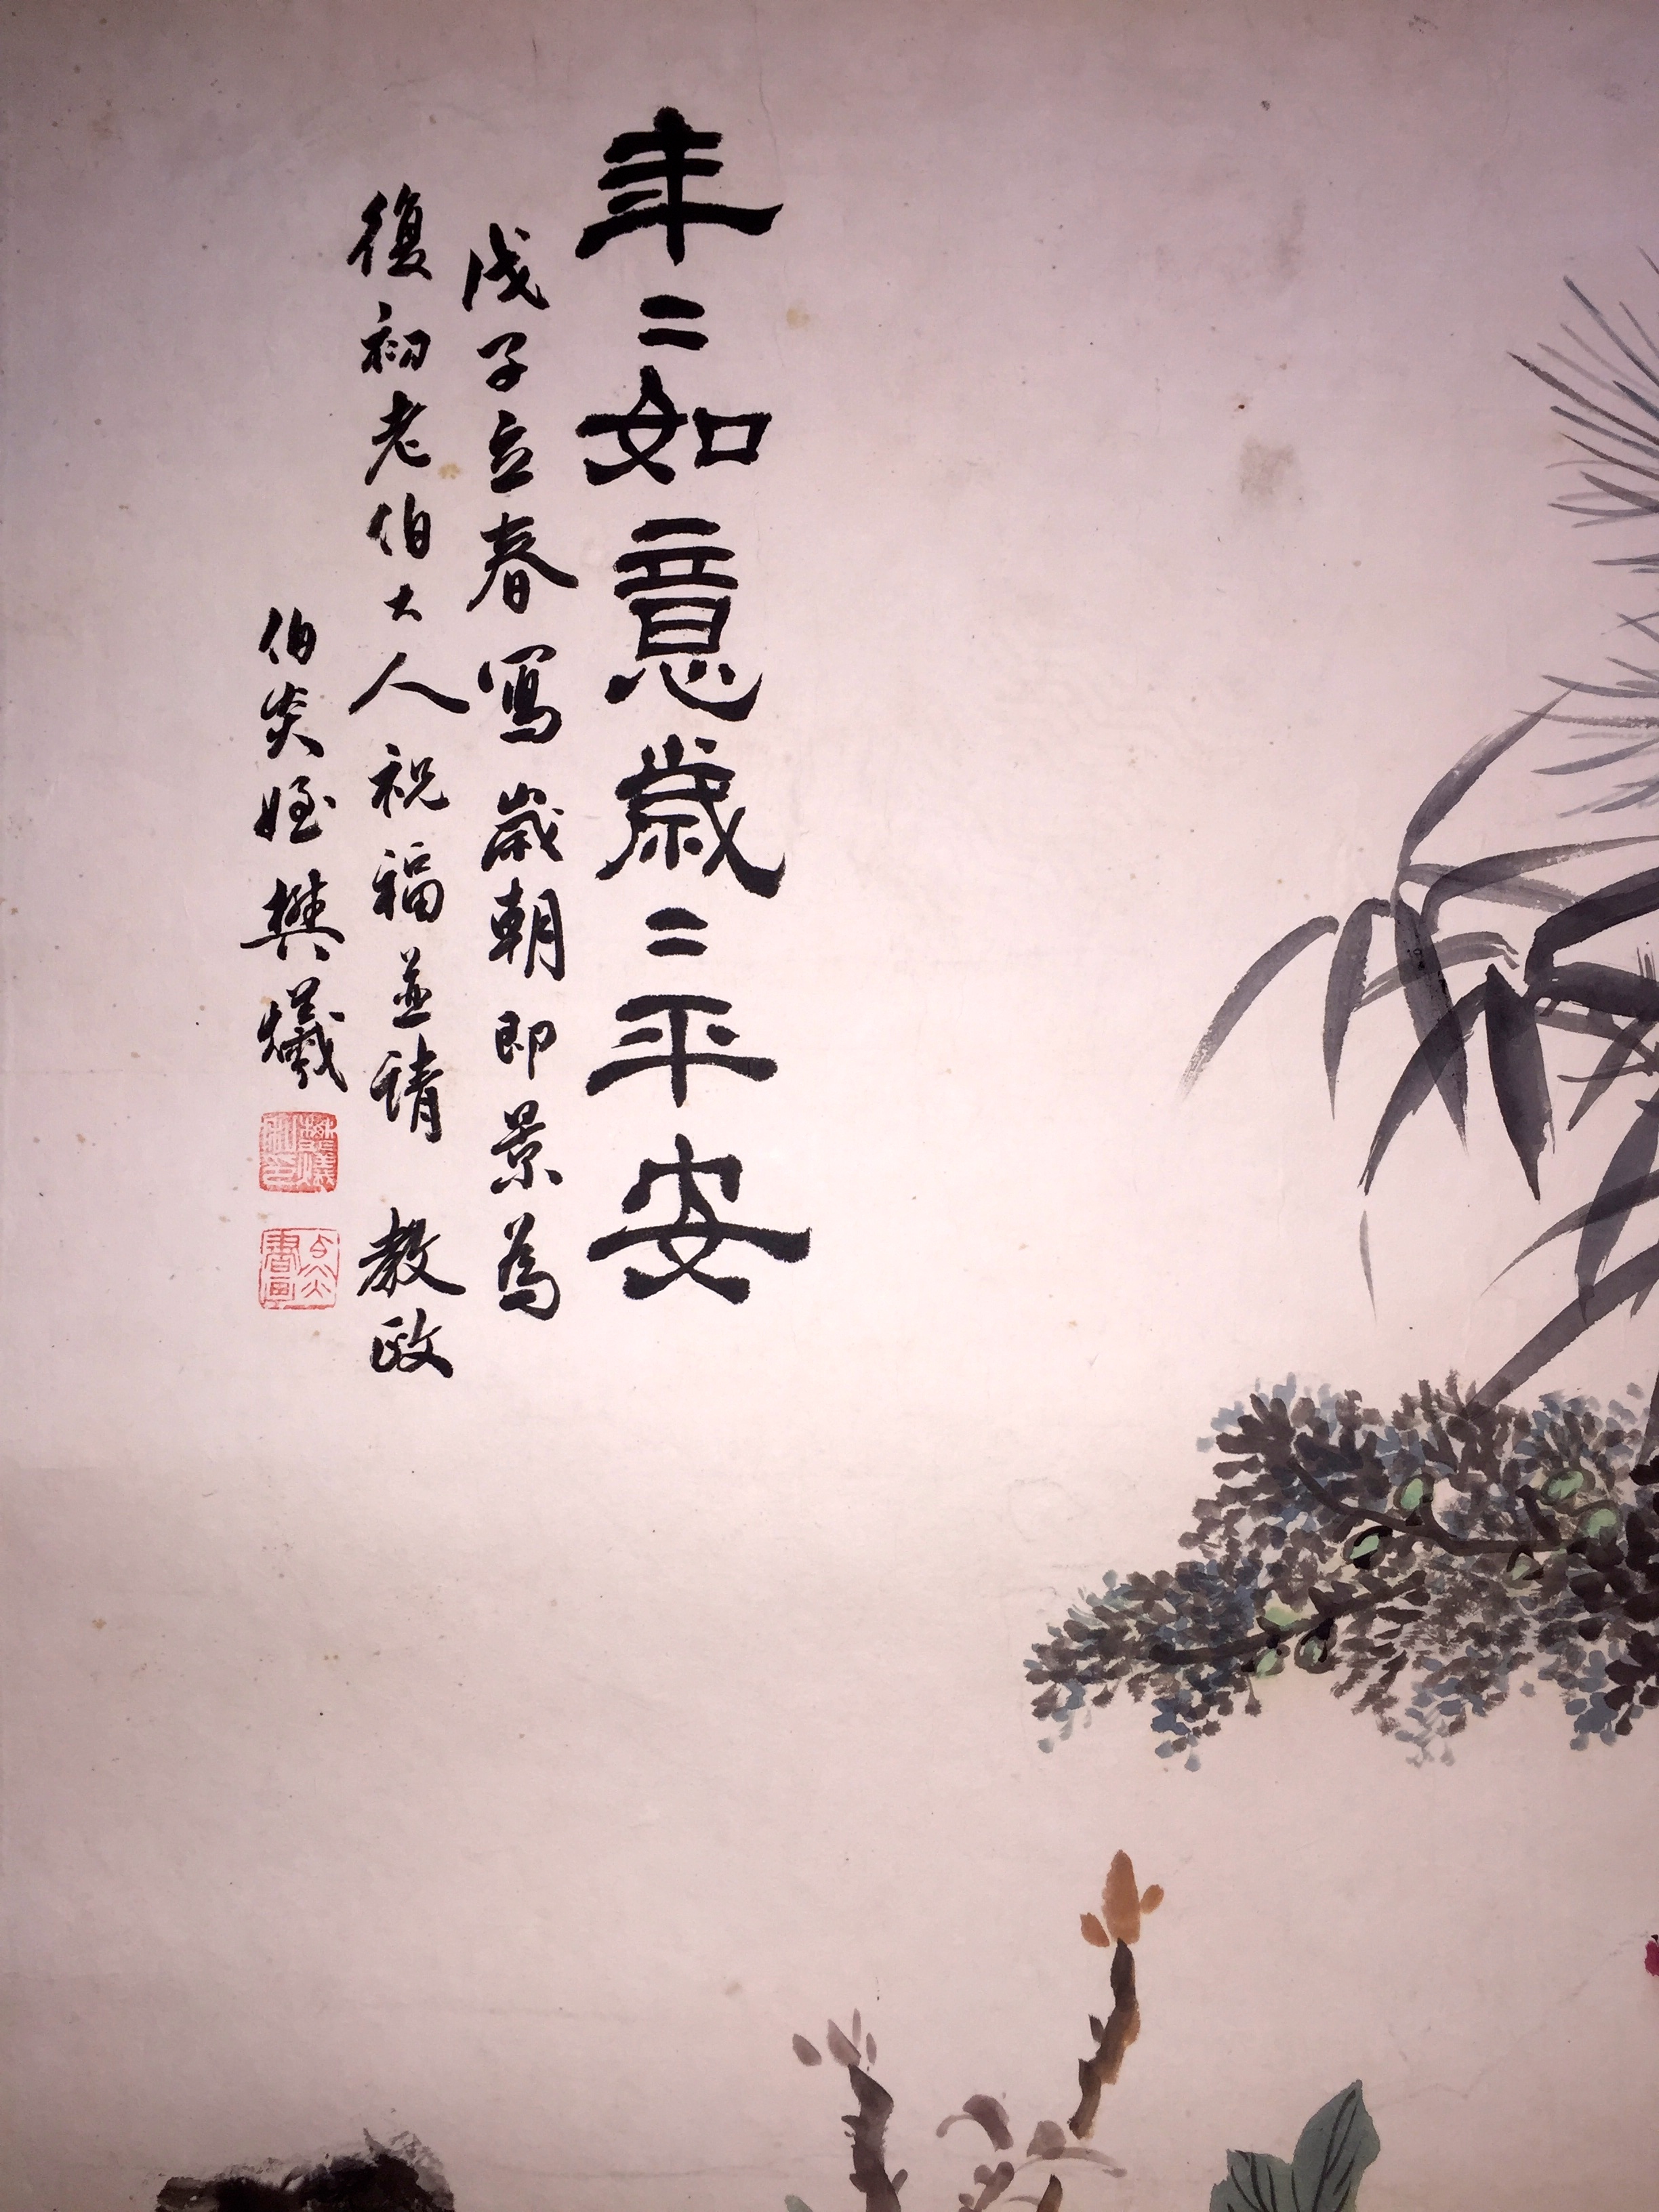 年二如意歲二平安
戊子立春寫歲朝即景為
復初老伯大人祝福並請 教政
伯炎姪樊爔